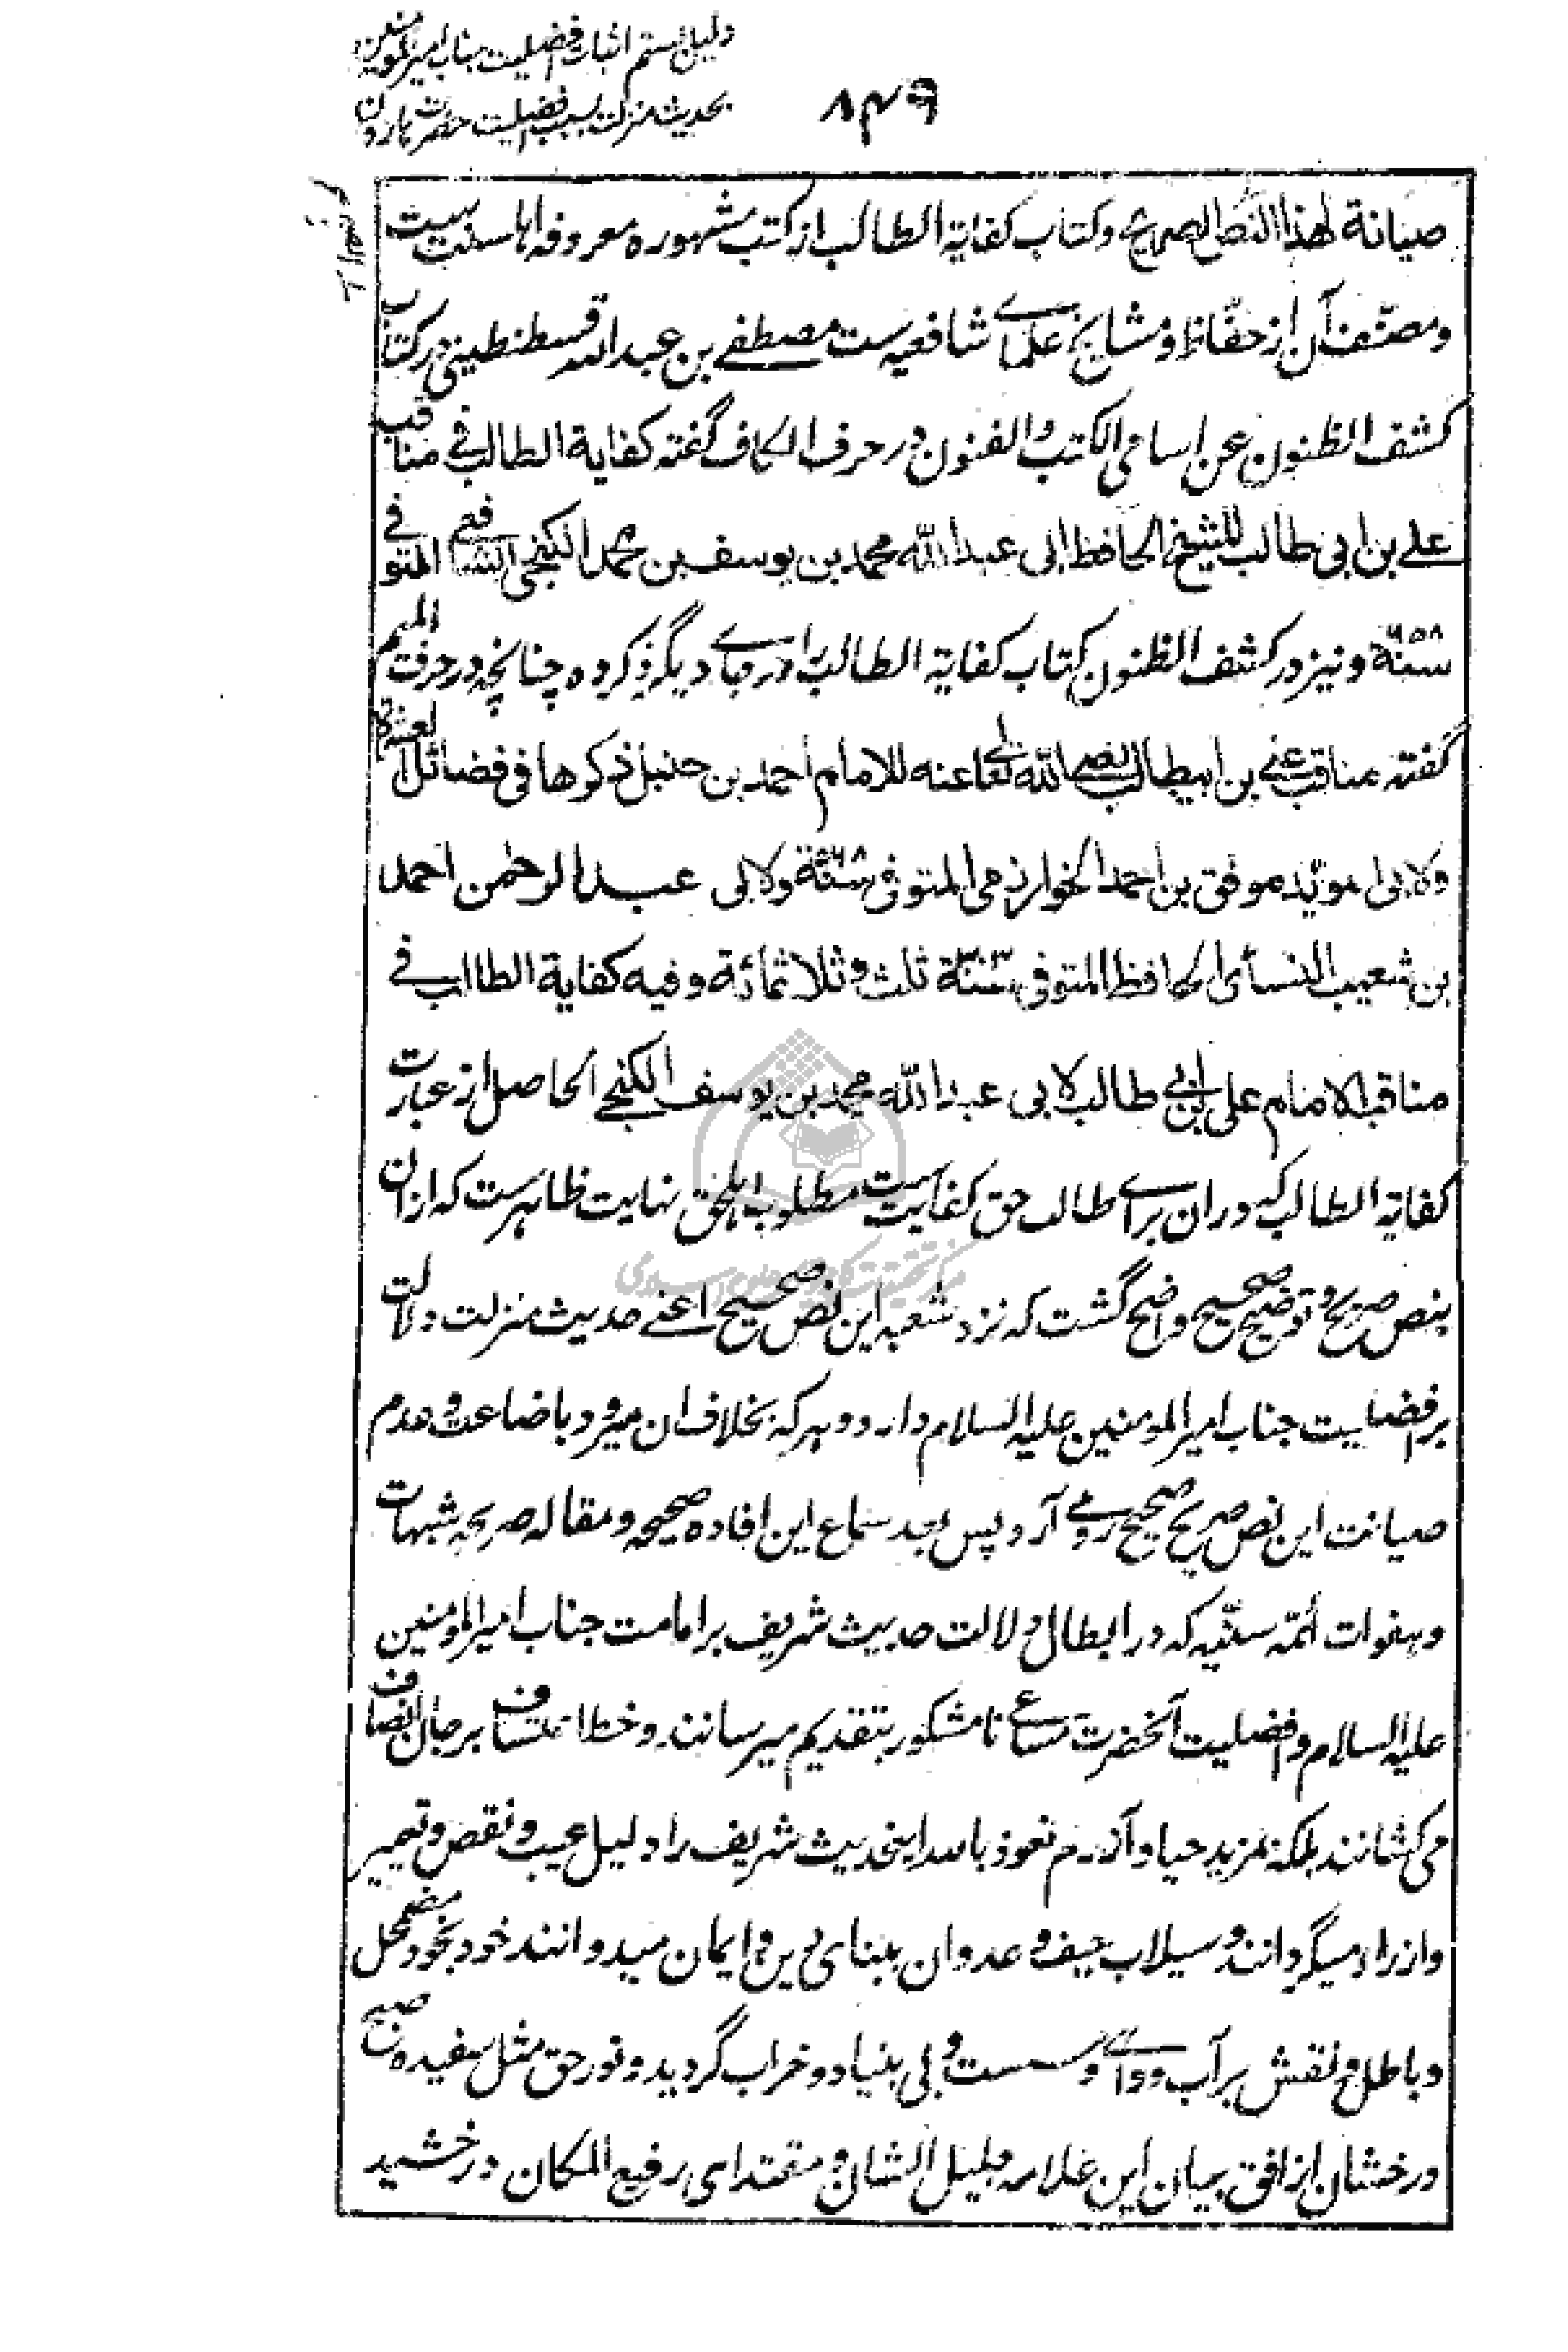 دلیل بستم اثبات افضلیت جناب امیرالمومنین
بحدیث منزلت بسبب افضلیت حضرت هارون
۸۴۶
صیانة لهذا النص الصریح و کتاب کفایة الطالب از کتب مشهوره معروفه اهل سنت ست
و مصنف آن از حفاظ و مشایخ علمای شافعیه ست مصطفے بن عبد الله قسطنطینی در کتاب
کشف الظنون عن اسامی الکتب و الفنون در حرف الکاف گفته کفایة الطالب فی مناقب
علے بن ابی طالب للشیخ الحافظ ابی عبد الله محمد بن یوسف بن محمد الکنجی الشافعی المتوفی
سنة ۶۵۸ و نیز در کشف الظنون کتاب کفایة الطالب را در جاے دیگر ذکر کرده چنانچه در حرف المیم
گفته مناقب علی بن ابیطالب رضی الله تعالی عنه للامام احمد بن حنبل ذکرها فی فضائل العشرة
ولابی المؤید موفق بن احمد الخوارزمی المتوفی سنة ۵۶۸ ولابی عبد الرحمن احمد
بن شعیب النسائی الحافظ المتوفی سنة ۳۰۳ ثلث و ثلاثمائة و فیه کفایة الطالب فی
مناقب الامام علی بن ابی طالب لابی عبد الله محمد بن یوسف الکنجے الحاصل از عبارت
کفایة الطالب که در ان براے طالب حق کفایت ست مطلوب اهل حق نهایت ظاهرست که ازان
بنص صریح و توضیح صحیح واضح گشت که نزد شعبه این نص صحیح اعنے حدیث منزلت دلالت
بر افضلیت جناب امیر المومنین علیه السلام دارد و هر که بخلاف ان میرود باضاعت و هدم
صیانت این نص صریح صحیح رو می آرد پس بعد سماع این افاده صحیحه و مقاله صریحه شبهات
و هفوات أئمه سنیه که در ابطال دلالت حدیث شریف بر امامت جناب امیر المومنین
علیه السلام و افضلیت آنحضرت مساعی نامشکور بتقدیم میرسانند و خطا اعتساف بر جان انصاف
می کشانند بلکه بمزید حیا و آزرم نعوذ بالله اینحدیث شریف را دلیل عیب و نقص و تعییر
و ازراء میگردانند و سیلاب حیف و عدوان ببنای دین و ایمان میدوانند خود بخود مضمحل
و باطل و نقش بر آب و واے و سست و بی بنیاد و خراب گردید و نور حق مثل سفیده صبح
درخشان از افق بیان این علامه جلیل الشان و مقتدای رفیع المکان درخشید